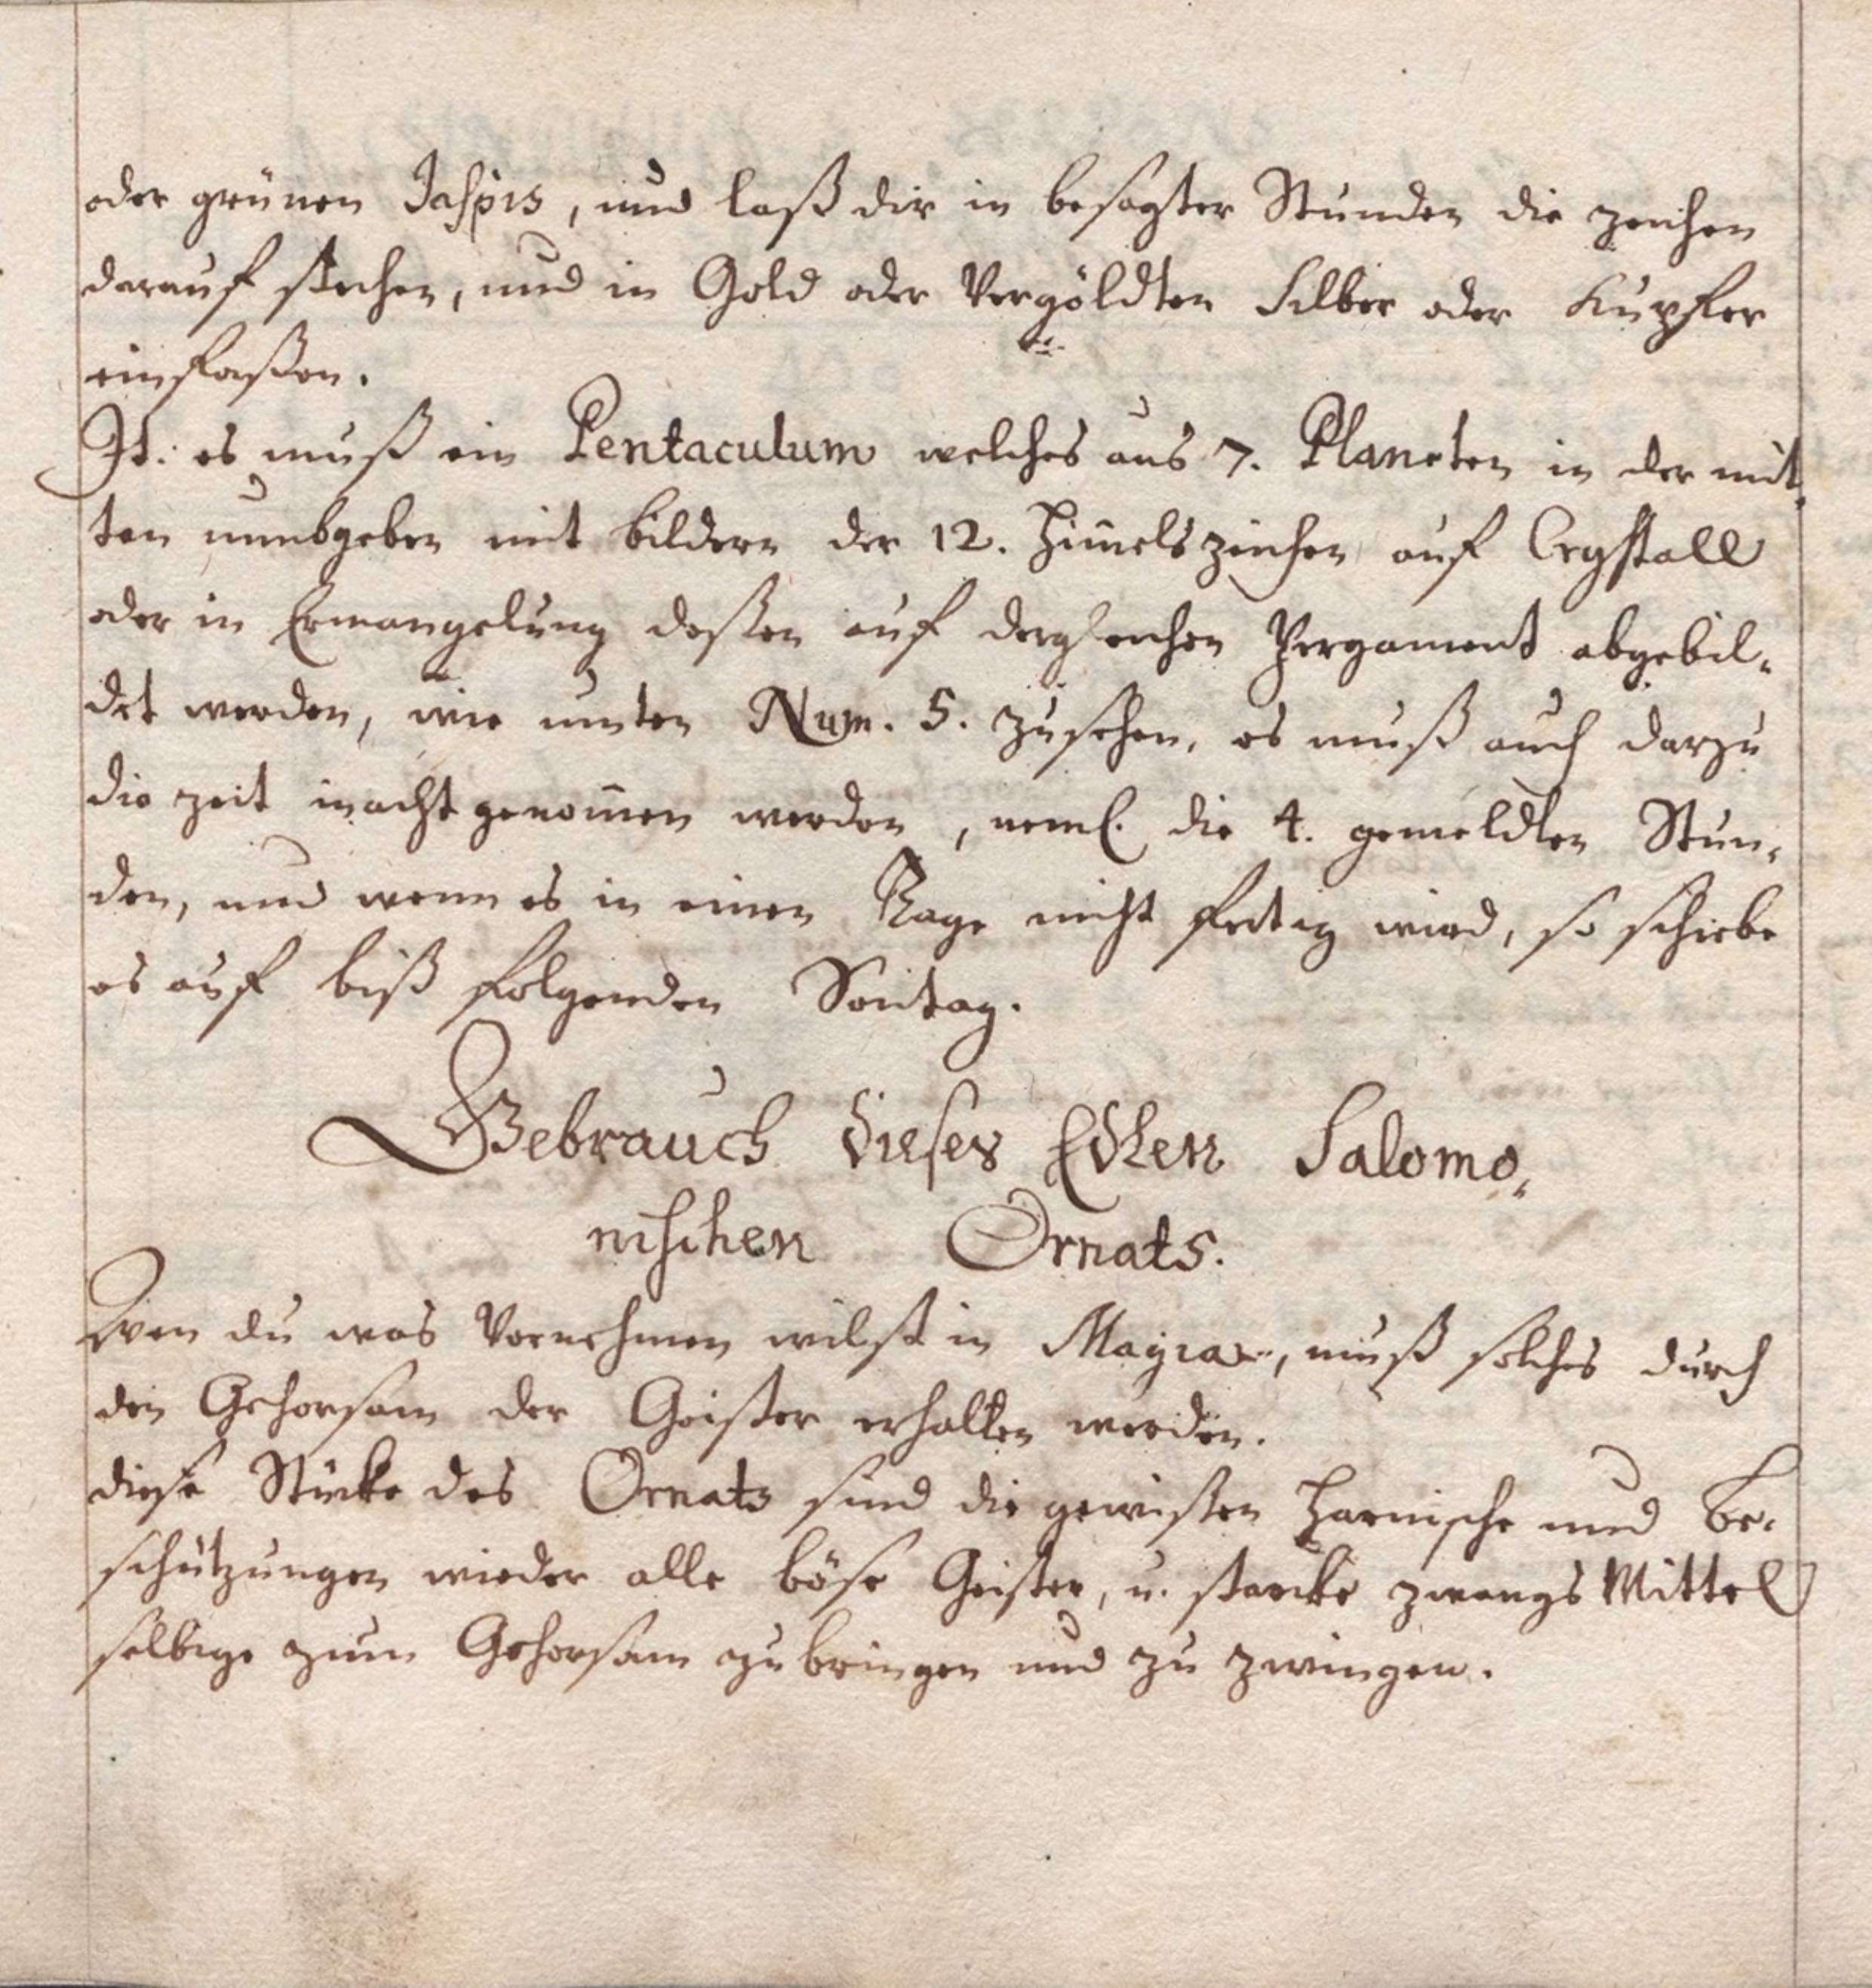 oder grünen Jaspis, und laß dir in besagter Stunden die zeichen
darauf stechen, und in Gold oder Vergöldten Silber oder Kupfer
einfaßen.
It: es muß ein Pentaculum welches aus 7. Planeten in der mit„
ten umbgeben mit bildern der 12. Him̅elszeichen auf Crystall
oder in Ermangelung deßen auf dergleichen Pergament abgebil„
det werden, wie unten Num. 5. zusehen, es muß auch darzu
die zeit inacht genom̅en werden, neml. die 4. gemeldten Stun„
den, und wenn es in einen Tage nicht fertig wird, so schiebe
es auf biß folgenden Son̅tag.
Gebrauch dieses Edlen Salomo„
nischen Ornats.
Wen du was Vornehmen wilst in Magia, muß solches durch
den Gehorsam der Geister erhalten werden.
diese Stücke des Ornats sind die gewißen Harnische und Be„
schützungen wieder alle böse Geister, u. starcke zwangs Mittel
selbige zum Gehorsam zu bringen und zu zwingen.